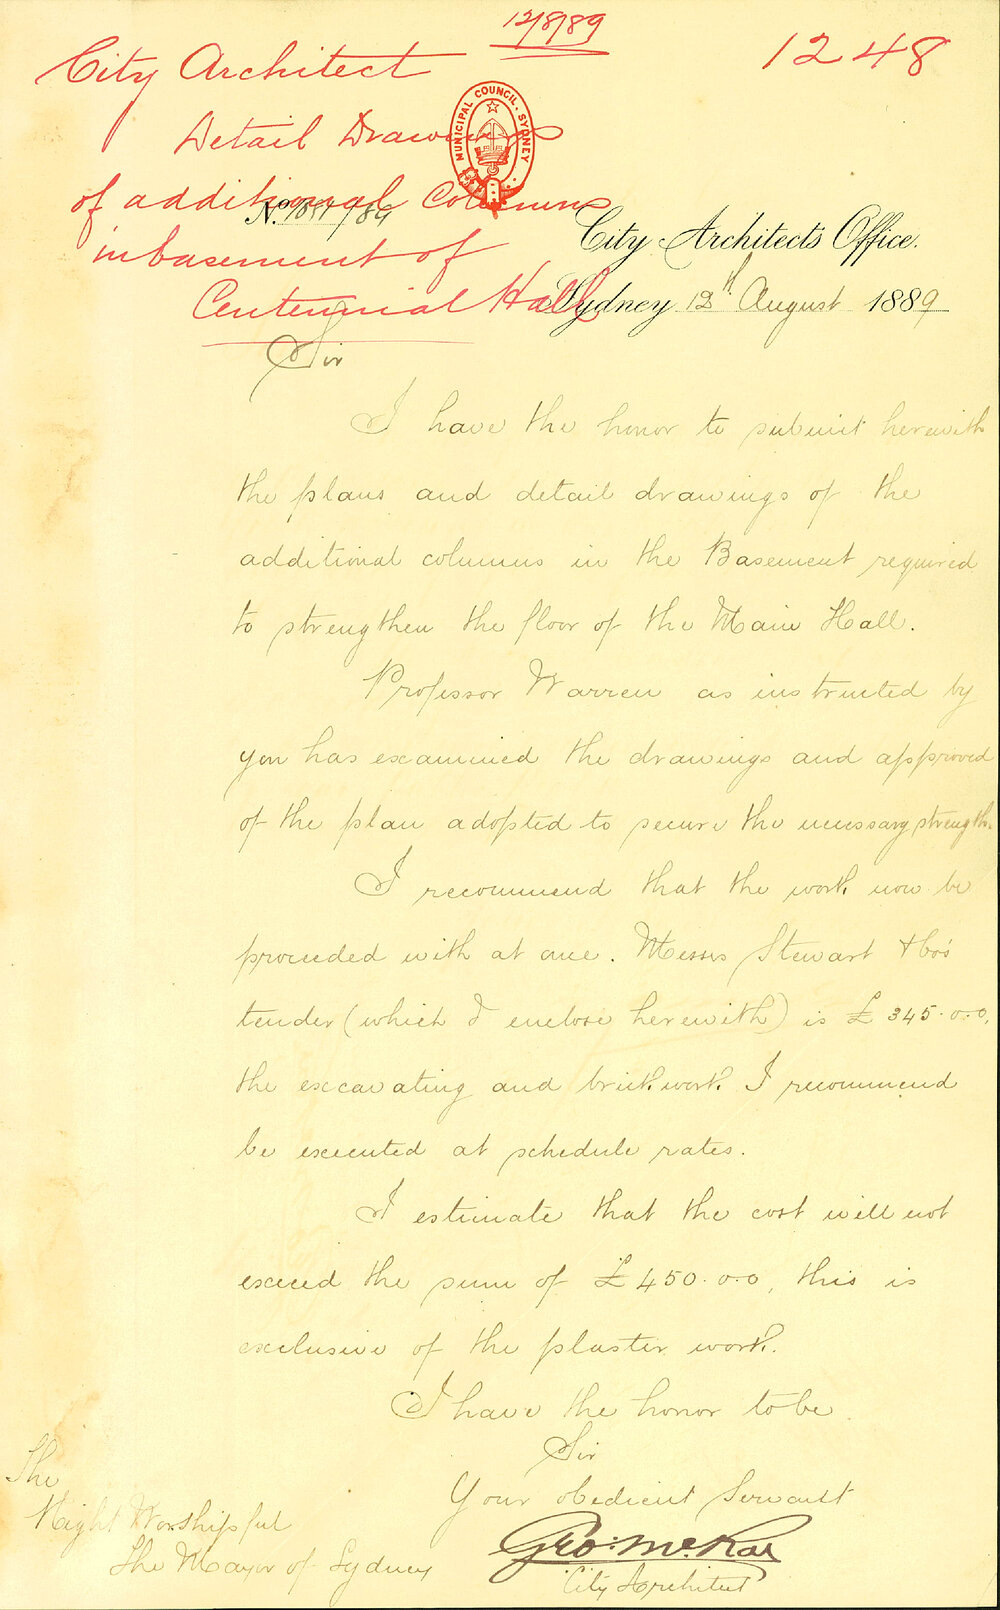 12/8/89
1248
City Architect
Detail Drawings
of additional Columns
in basement of
Centennial Hall
MUNICIPAL COUNCIL. SYDNEY
No. /89
City Architect's Office.
Sydney 12th August 1889
Sir
I have the honor to submit herewith
the plans and detail drawings of the
additional columns in the Basement required
to strengthen the floor of the Main Hall.
Professor Warren as instructed by
you has examined the drawings and approved
of the plan adopted to secure the necessary strength.
I recommend that the work now be
proceeded with at once. Messrs Stewart & Co's
tender (which I enclose herewith) is £345.0.0,
the excavating and brickwork I recommend
be executed at schedule rates.
I estimate that the cost will not
exceed the sum of £450.0.0, this is
exclusive of the plaster work.
I have the honor to be
Sir
Your obedient Servant
Geo: McRae
City Architect
The
Right Worshipful
The Mayor of Sydney